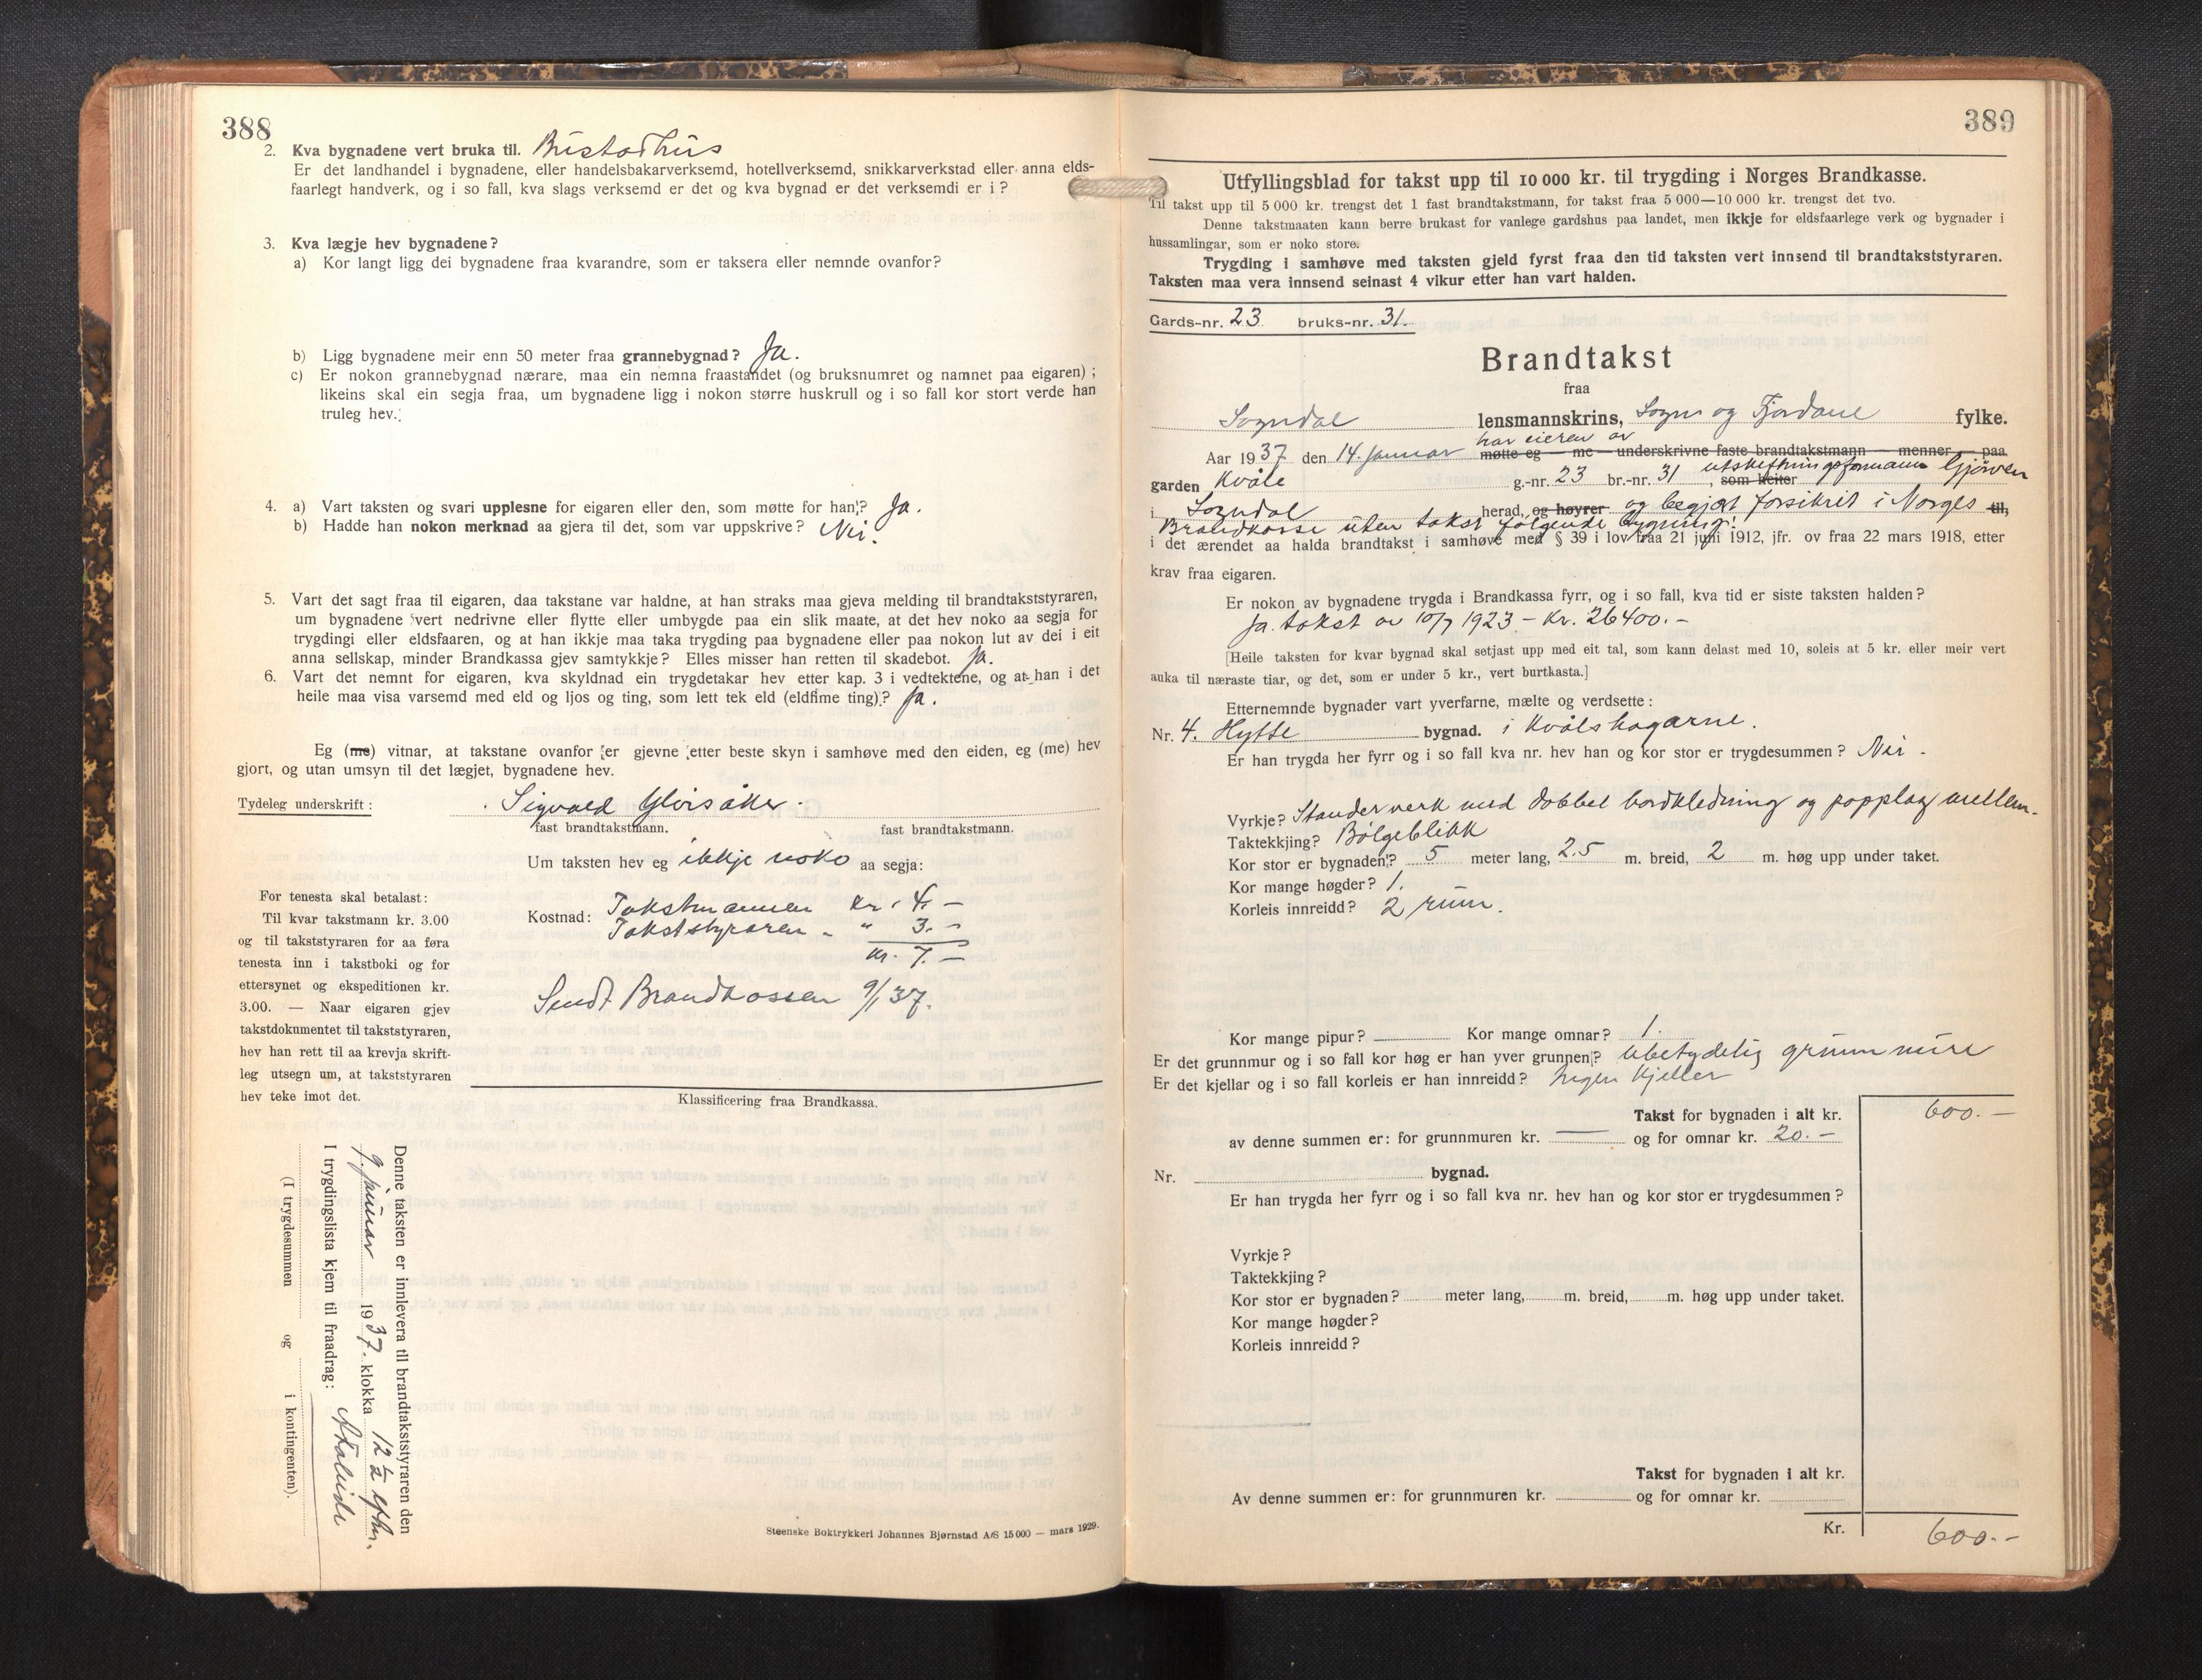 388
2. Kva bygnadene vert bruka til. Bustadhus
Er det landhandel i bygnadene, eller handelsbakarverksemd, hotellverksemd, snikkarverkstad eller anna elds-
faarlegt handverk, og i so fall, kva slags verksemd er det og kva bygnad er det verksemdi er i?
3. Kva lægje hev bygnadene?
a) Kor langt ligg dei bygnadene fraa kvarandre, som er taksera eller nemnde ovanfor?
b) Ligg bygnadene meir enn 50 meter fraa grannebygnad? Ja.
c) Er nokon grannebygnad nærare, maa ein nemna fraastandet (og bruksnumret og namnet paa eigaren);
likeins skal ein segja fraa, um bygnadene ligg i nokon større huskrull og i so fall kor stort verde han
truleg hev.
4. a) Vart taksten og svari upplesne for eigaren eller den, som møtte for han? Ja.
b) Hadde han nokon merknad aa gjera til det, som var uppskrive? Nei.
5. Vart det sagt fraa til eigaren, daa takstane var haldne, at han straks maa gjeva melding til brandtakststyraren,
um bygnadene vert nedrivne eller flytte eller umbygde paa ein slik maate, at det hev noko aa segja for
trygdingi eller eldsfaaren, og at han ikkje maa taka trygding paa bygnadene eller paa nokon lut av dei i eit
anna sellskap, minder Brandkassa gjev samtykkje? Elles misser han retten til skadebot. Ja.
6. Vart det nemnt for eigaren, kva skyldnad ein trygdetakar hev etter kap. 3 i vedtektene, og at han i det
heile maa visa varsemd med eld og ljos og ting, som lett tek eld (eldfime ting)? Ja.
Eg (me) vitnar, at takstane ovanfor er gjevne etter beste skyn i samhøve med den eiden, eg (me) hev
gjort, og utan umsyn til det lægjet, bygnadene hev.
Tydeleg underskrift: Sigvald
fast brandtakstmann. fast brandtakstmann.
Um taksten hev eg ikkje noko aa segja:
For tenesta skal betalast:
Til kvar takstmann kr. 3.00
og til takststyraren for aa føra
tenesta inn i takstboki og for
ettersynet og ekspeditionen kr.
3.00. — Naar eigaren gjev
takstdokumentet til takststyraren,
hev han rett til aa krevja skrift-
leg utsegn um, at takststyraren
hev teke imot det.
Kostnad: Takstmannen kr. 4. —
Takststyraren - " 3. -
kr. 7. —
Sendt Brandkassen 9/1 37.
Klassificering fraa Brandkassa.
Denne taksten er innlevera til brandtakststyraren den
9 januar 1937. klokka 12½ efm.
I trygdingslista kjem til fraadrag:
(I trygdesummen og i kontingenten).
Steenske Boktrykkeri Johannes Bjørnstad A/S 15000 — mars 1929.
389
Utfyllingsblad for takst upp til 10 000 kr. til trygding i Norges Brandkasse.
Til takst upp til 5 000 kr. trengst det 1 fast brandtakstmann, for takst fraa 5 000—10 000 kr. trengst det tvo.
Denne takstmaaten kann berre brukast for vanlege gardshus paa landet, men ikkje for eldsfaarlege verk og bygnader i
hussamlingar, som er noko store.
Trygding i samhøve med taksten gjeld fyrst fraa den tid taksten vert innsend til brandtakststyraren.
Taksten maa vera innsend seinast 4 vikur etter han vart halden.
Gards-nr. 23 bruks-nr. 31.
Brandtakst
fraa
Sogndal lensmannskrins, Sogn og Fjordane fylke.
har eieren av
Aar 1937 den 14. januar møtte eg — me — underskrivne faste brandtakstmann — menner — paa
utskiftningsformann Gjørven
garden Kvåle g.-nr. 23 br.-nr. 31, som heiter
i Sogndal herad, og høyrer og begjært forsikret i Norges til,
Brandkasse uten takst følgende bygning:
i det ærendet aa halda brandtakst i samhøve med § 39 i lov fraa 21 juni 1912, jfr. ov fraa 22 mars 1918, etter
krav fraa eigaren.
Er nokon av bygnadene trygda i Brandkassa fyrr, og i so fall, kva tid er siste taksten halden?
Ja. takst av 10/7 1923 – kr. 26400. –
[Heile taksten for kvar bygnad skal setjast upp med eit tal, som kann delast med 10, soleis at 5 kr. eller meir vert
auka til næraste tiar, og det, som er under 5 kr., vert burtkasta.]
Etternemnde bygnader vart yverfarne, mælte og verdsette:
Nr. 4. Hytte bygnad. i Kvålshagarne.
Er han trygda her fyrr og i so fall kva nr. hev han og kor stor er trygdesummen? Nei -
Vyrkje? Standerverk med dobbel bordkledning og papplag mellem.
Taktekkjing? Bølgeblikk
Kor stor er bygnaden? 5 meter lang, 2.5 m. breid, 2 m. høg upp under taket.
Kor mange høgder? 1.
Korleis innreidd? 2 rum.
Kor mange pipur? — Kor mange omnar? 1.
Er det grunnmur og i so fall kor høg er han yver grunnen? Ubetydelig grunnmure
Er det kjellar og i so fall korleis er han innreidd? Ingen kjeller
Takst for bygnaden i alt kr. 600. —
av denne summen er: for grunnmuren kr. — og for omnar kr. 20. –
Nr. bygnad.
Er han trygda her fyrr og i so fall kva nr. hev han og kor stor er trygdesummen?
Vyrkje?
Taktekkjing?
Kor stor er bygnaden? meter lang, m. breid, m. høg upp under taket.
Kor mange høgder?
Korleis innreidd?
Takst for bygnaden i alt kr.
Av denne summen er: for grunnmuren kr. og for omnar kr.
Kr. 600. –